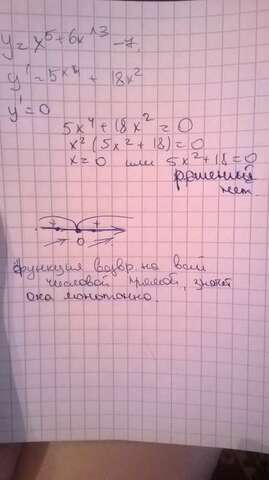 y = x^5 + 6x^3 - 7.
y' = 5x^4 + 18x^2
y' = 0
5x^4 + 18x^2 = 0
x^2 (5x^2 + 18) = 0
x = 0 или 5x^2 + 18 = 0
решений
нет.
+ +
0
функция возвр. на всей
числовой прямой, значит
она монотонно.